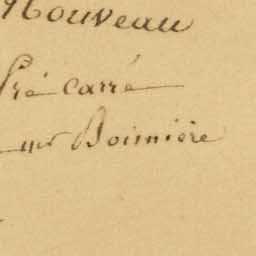 Nouveau
Pré carré
sur Boissière